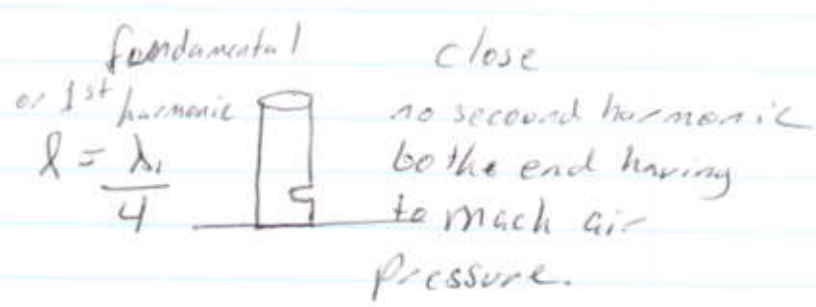 fundamental
or 1st harmonic
l = λ1
4
close
no secound harmonic
bothe end having
to mach air
pressure.